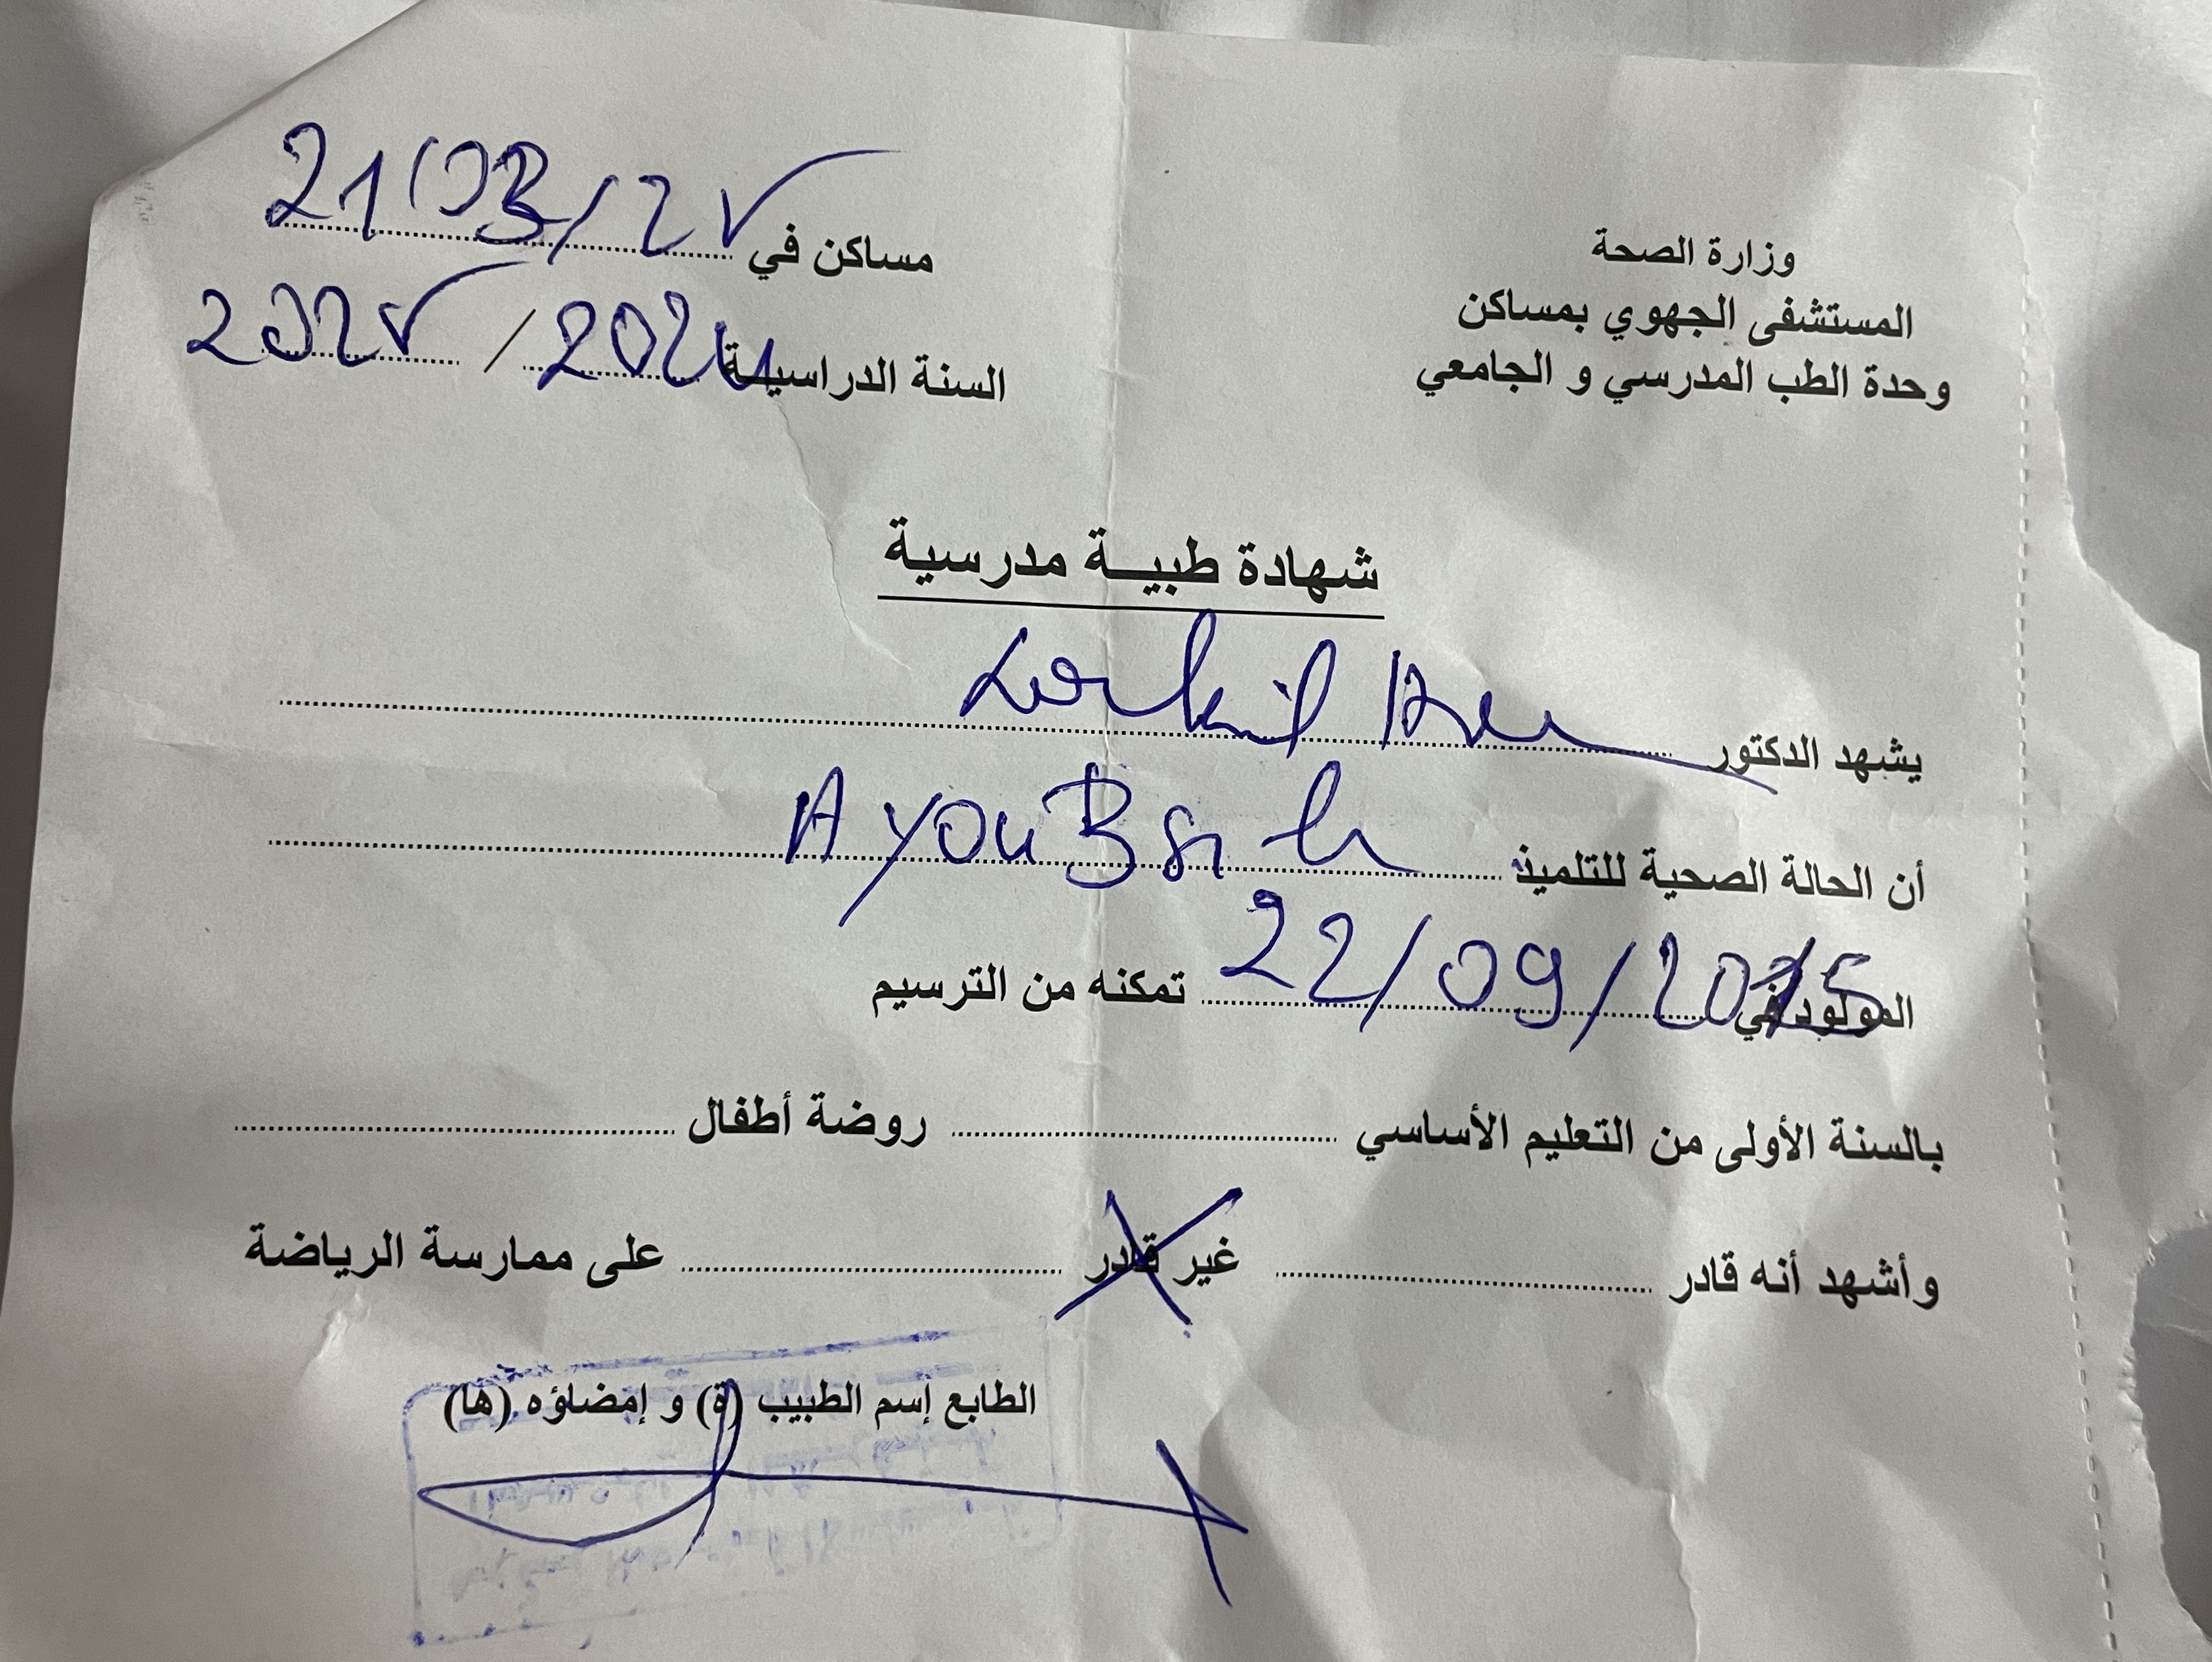 وزارة الصحة
المستشفى الجهوي بمساكن
وحدة الطب المدرسي و الجامعي
مساكن في 21/03/25
السنة الدراسية 2024 / 2025
شهادة طبية مدرسية
يشهد الدكتور
أن الحالة الصحية للتلميذ Ayoub
المولود في 22/09/2015 تمكنه من الترسيم
بالسنة الأولى من التعليم الأساسي روضة أطفال
وأشهد أنه قادر غير قادر على ممارسة الرياضة
الطابع إسم الطبيب (ة) و إمضاؤه (ها)